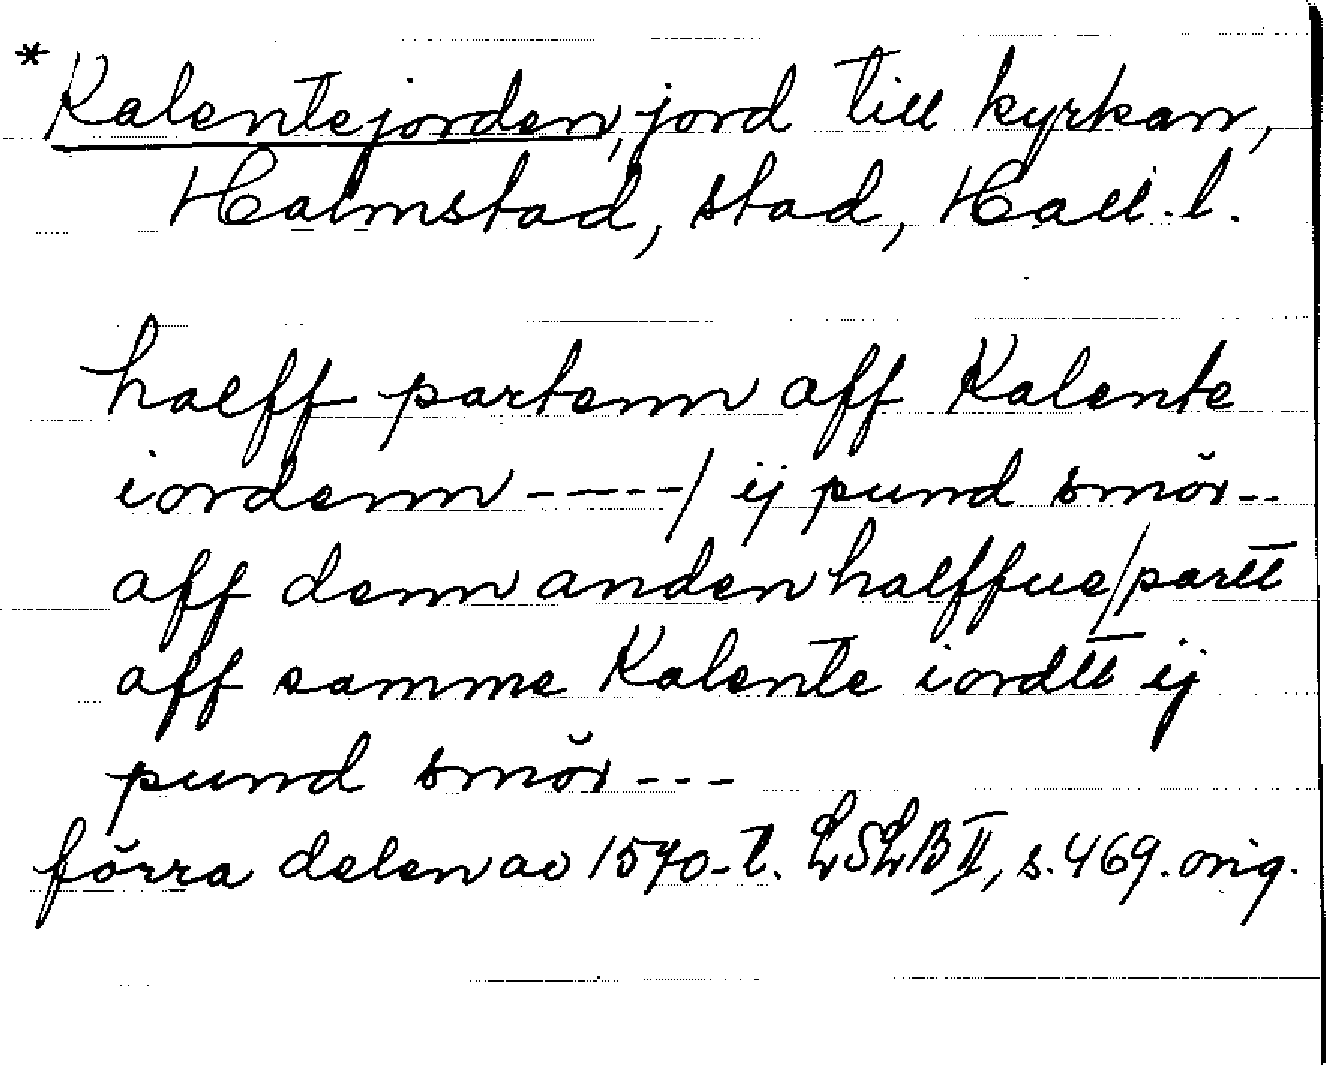 * Kalentejorden, jord till kyrkan,
Halmstad, stad, Hall. l.
halff partenn aff Kalente
iordenn -----/ ij pund smör--
aff denn anden halffue/partt
aff samme Kalente iordtt ij
pund smör---
förra delen av 1570-t. LSLB II, s. 469. orig.